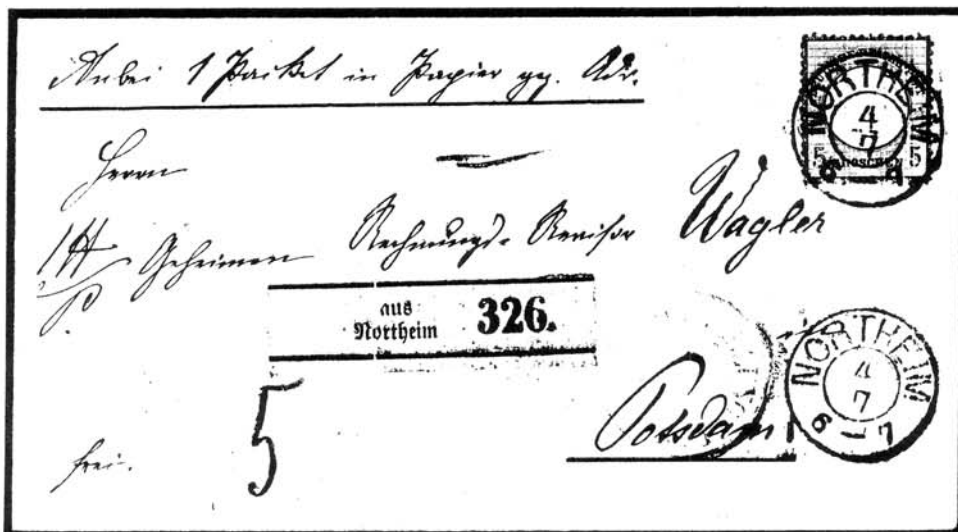 Anbei 1 Packet in Papier gez. Adr.
NORTHEIM
4
7
6-7
5 GROSCHEN 5
Herrn
Geheimen Rechnungs-Revisor Wagler
aus
Northeim 326.
NORTHEIM
4
7
6-7
Potsdam
frei.
5